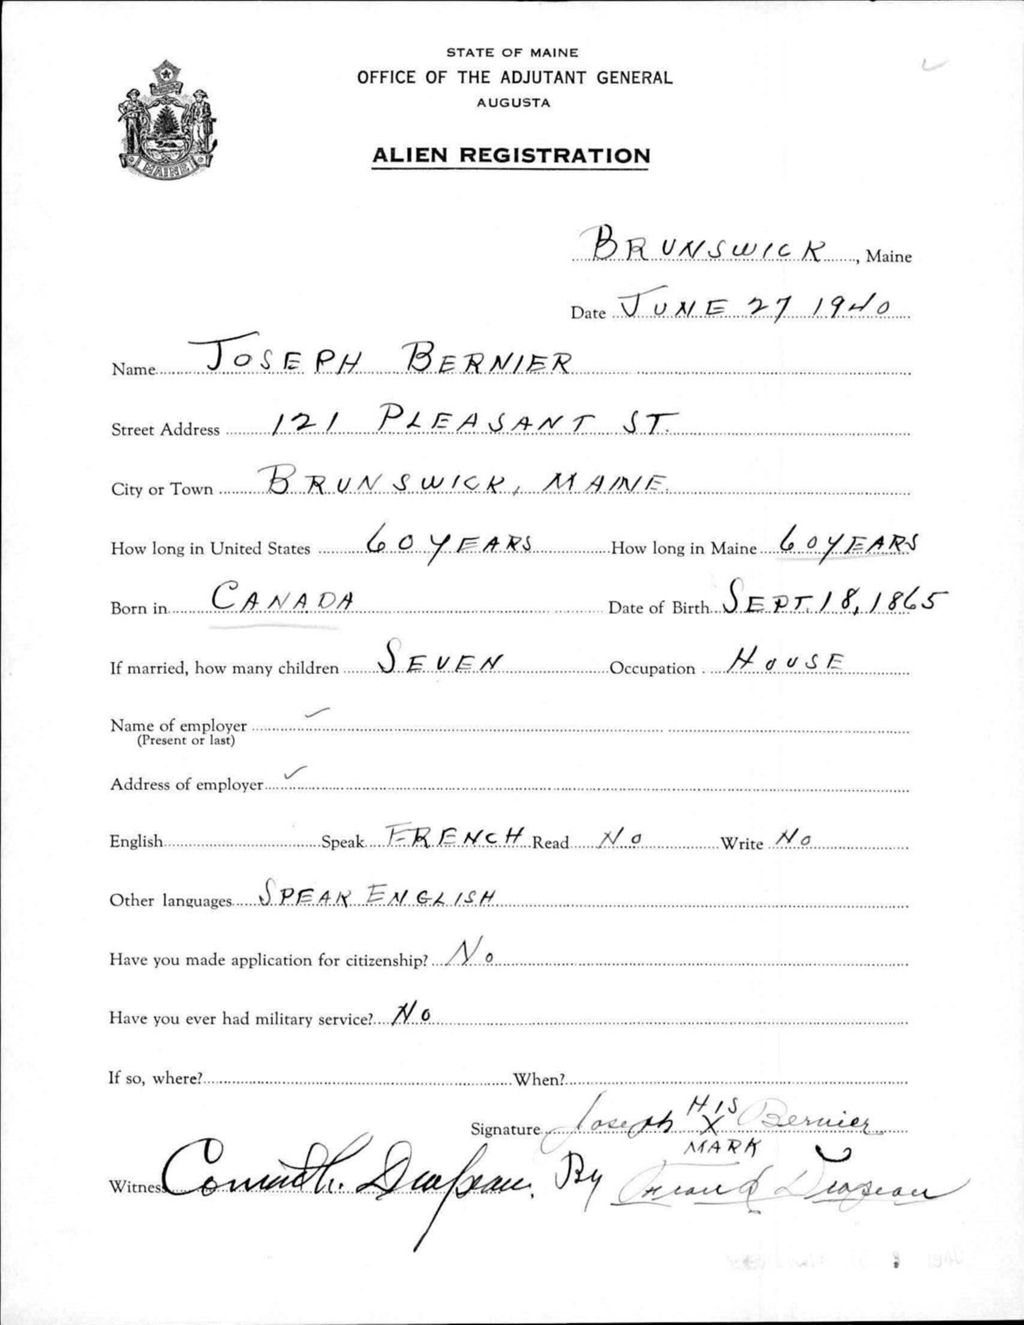 STATE OF MAINE
OFFICE OF THE ADJUTANT GENERAL
AUGUSTA
ALIEN REGISTRATION
MAINE
BRUNSWICK, Maine
Date JUNE 27 1940
Name JOSEPH BERNIER
Street Address 121 PLEASANT ST.
City or Town BRUNSWICK, MAINE.
How long in United States 60 YEARS How long in Maine 60 YEARS
Born in CANADA Date of Birth SEPT. 18, 1865
If married, how many children SEVEN Occupation HOUSE
Name of employer
(Present or last)
Address of employer
English Speak FRENCH Read No Write No
Other languages SPEAK ENGLISH
Have you made application for citizenship? No
Have you ever had military service? No
If so, where? When?
Signature Joseph HIS X MARK Bernier
Witness By